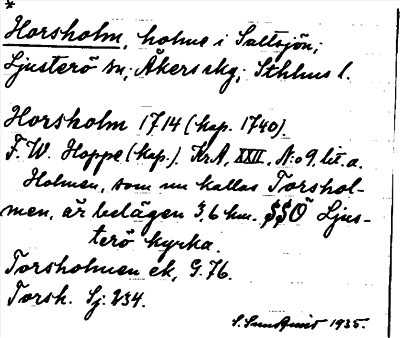 *
Horsholm, holme i Saltsjön,
Ljusterö sn; Åkers skg; Sthlms l.
Horsholm 1714 (kop. 1740).
F. W. Hoppe (kop.). KrA, XXII, N:o 9. lit. a.
Holmen, som nu kallas Torshol-
men, är belägen 3,6 km. SSO Ljus-
terö kyrka.
Torsholmen ek, G. 76.
Torsh. Sj. 234.
S. Sundqvist 1935.